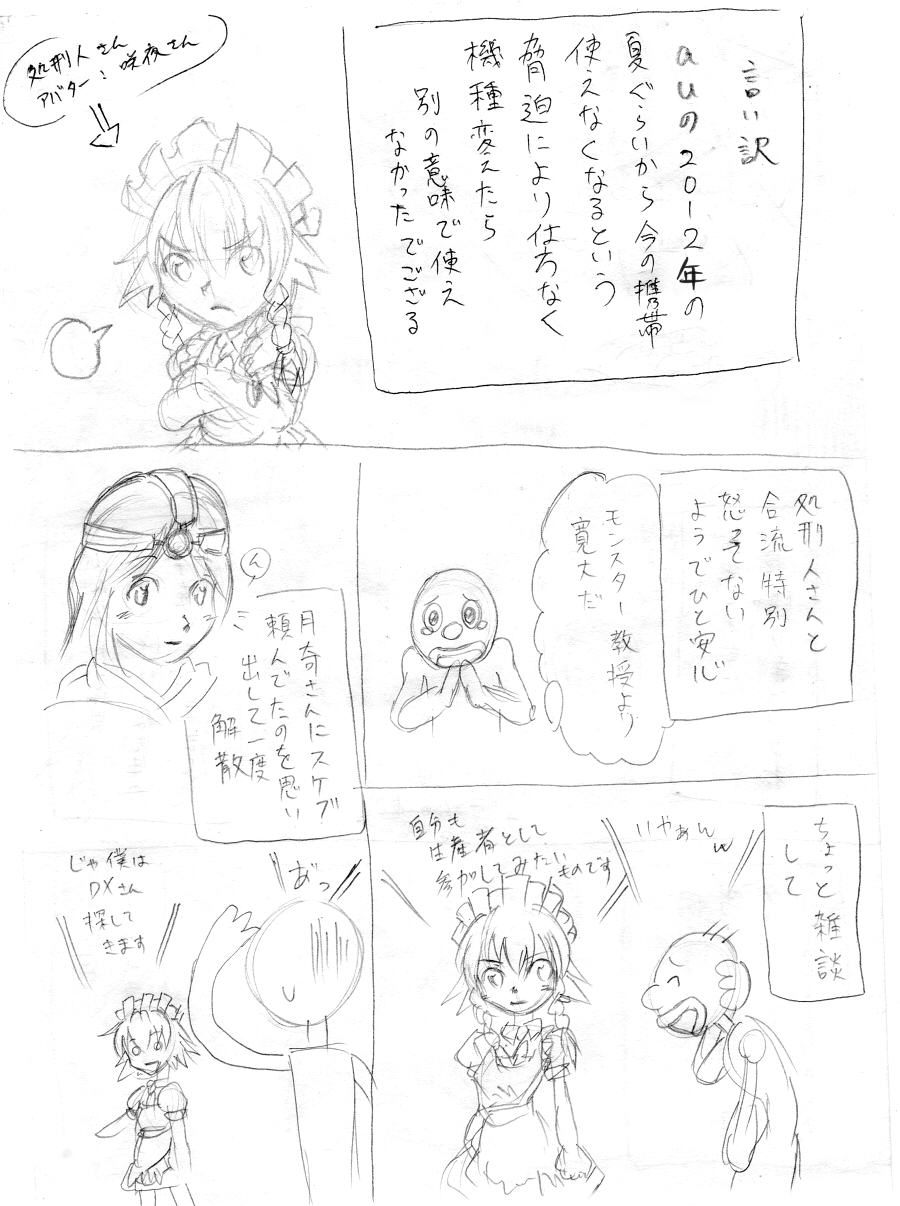 言い訳
auの2012年の
夏ぐらいから今の携帯
使えなくなるという
脅迫により仕方なく
機種変えたら
別の意味で使え
なかったでござる
処刑人さん
アバター：咲夜さん
処刑人さんと
合流特別
怒ってない
ようでひと安心
モンスター教授より
寛大だ
ん
月奇さんにスケブ
頼んでたのを思い
出して一度
解散
ちょっと雑談
して
いやぁんw
自分も
生産者として
参加してみたい
ものです
あっ
じゃ僕は
DXさん
探して
きます